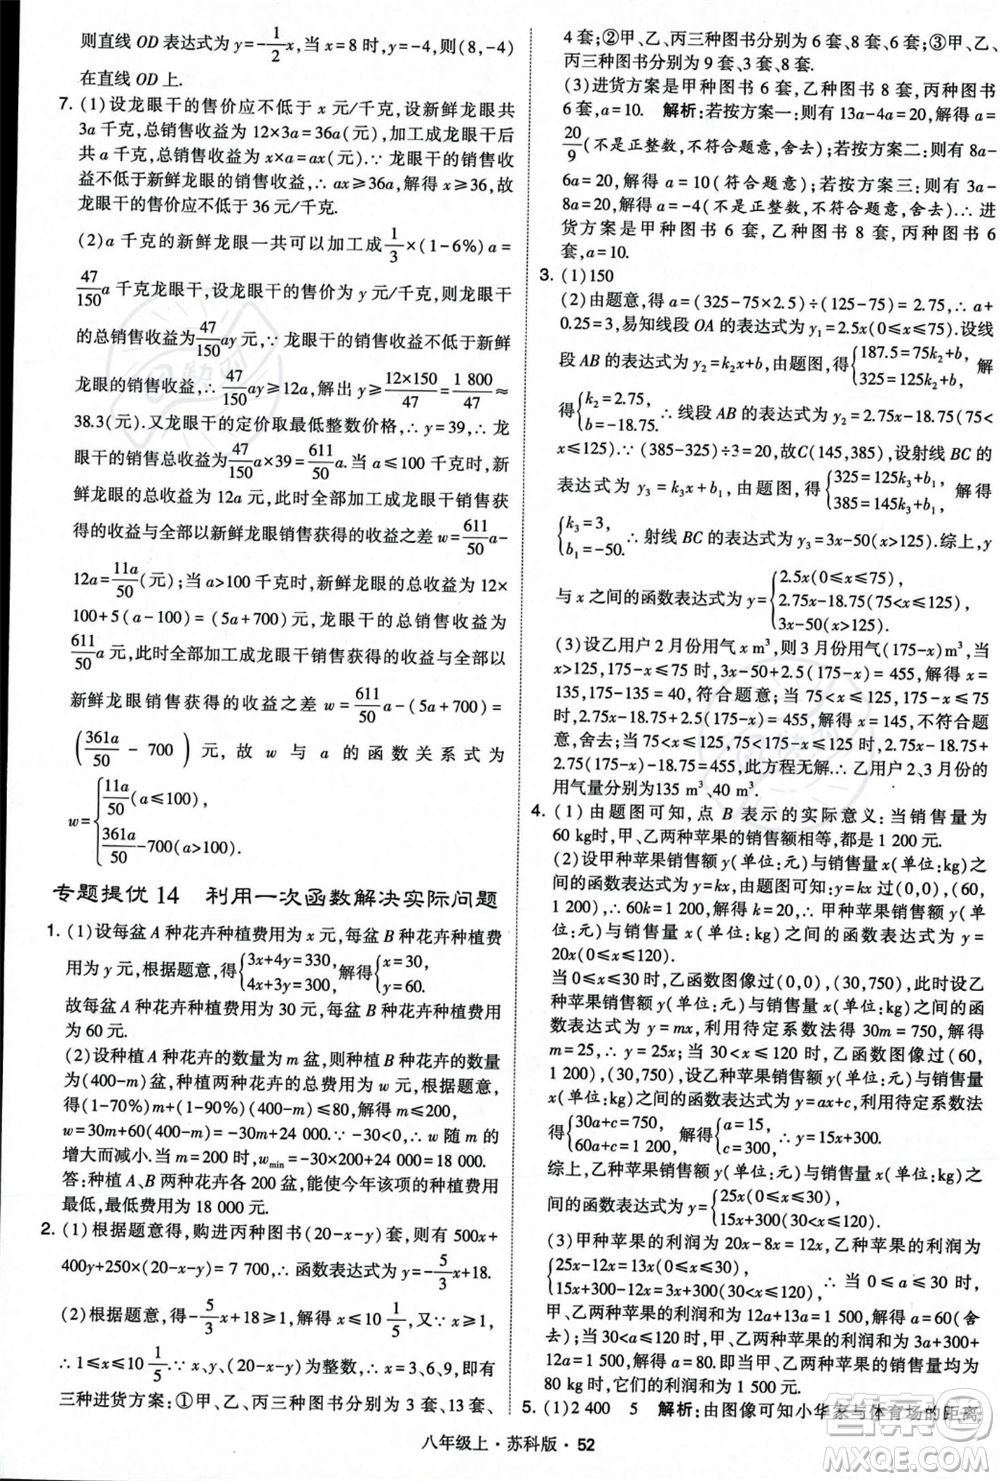 则直线 OD 表达式为 y=-1/2x,当 x=8 时,y=-4,则(8,-4)
在直线 OD 上.
7. (1)设龙眼干的售价应不低于 x 元/千克,设新鲜龙眼共
3a 千克,总销售收益为 12×3a=36a(元),加工成龙眼干后
共 a 千克,总销售收益为 x×a=ax(元).∵ 龙眼干的销售收
益不低于新鲜龙眼的销售收益,∴ ax≥36a,解得 x≥36,故
龙眼干的售价应不低于 36 元/千克.
(2)a 千克的新鲜龙眼一共可以加工成1/3×(1-6%)a=
47/150a千克龙眼干,设龙眼干的售价为 y 元/千克,则龙眼干
的总销售收益为47/150ay元,∵ 龙眼干的销售收益不低于新鲜
龙眼的销售收益,∴ 47/150ay≥12a,解出 y≥(12×150)/47=1 800/47≈
38.3(元).又龙眼干的定价取最低整数价格,∴ y=39,∴ 龙
眼干的销售总收益为47/150a×39=611/50a.当 a≤100 千克时,新
鲜龙眼的总收益为 12a(元),此时全部加工成龙眼干销售获
得的收益与全部以新鲜龙眼销售获得的收益之差 w=611/50a-
12a=11a/50(元);当 a>100 千克时,新鲜龙眼的总收益为 12×
100+5(a-100)=(5a+700)元,此时龙眼干的总收益为
611/50a,此时全部加工成龙眼干销售获得的收益与全部以
新鲜龙眼销售获得的收益之差为 611/50a-(5a+700)=
(361a/50-700)元,故 w 与 a 的函数关系式为
w={11a/50(a≤100),
361a/50-700(a>100).
专题提优 14 利用一次函数解决实际问题
1. (1)设每盆 A 种花卉种植费用为 x 元,每盆 B 种花卉种植费
用为 y 元,根据题意,得{3x+4y=330, 4x+3y=300,解得{x=30, y=60.
故每盆 A 种花卉种植费用为 30 元,每盆 B 种花卉种植费用
为 60 元.
(2)设种植 A 种花卉的数量为 m 盆,则种植 B 种花卉的数量
为(400-m)盆,种植两种花卉的总费用为 w 元,根据题意,得
(1-70%)m+(1-90%)(400-m)≤80,解得 m≤200,
w=30m+60(400-m)=-30m+24 000.∵ -30<0,∴ w 随 m 的
增大而减小,当 m=200 时,wmin=-30×200+24 000=18 000.
答:种植 A、B 两种花卉各 200 盆,能使今年该项的种植费用
最低,最低费用为 18 000 元.
2. (1)根据题意得,购进丙种图书(20-x-y)套,则有 500x+
400y+250×(20-x-y)=7 700,∴ 函数表达式为 y=-5/3x+18.
(2)根据题意,得-5/3x+18≥1,解得 x≤10 1/5,又∵ x≥1,
∴ 1≤x≤10 1/5.∵ x、y、(20-x-y)为整数,∴ x=3,6,9,即有
三种进货方案:①甲、乙、丙三种图书分别为 3 套、13 套、
4 套;②甲、乙、丙三种图书分别为 6 套、8 套、6 套;③甲、乙、
丙三种图书分别为 9 套、3 套、8 套.
(3)进货方案是甲种图书 6 套,乙种图书 8 套,丙种图书
6 套,a=10. 解析:若按方案一:则有 13a-4a=20,解得 a=
20/9(不是正整数,不符合题意,舍去);若按方案二:则有 8a-
6a=20,解得 a=10(符合题意);若按方案三:则有 3a-
8a=20,解得 a=-4(不是正整数,不符合题意,舍去).∴ 进
货方案是甲种图书 6 套,乙种图书 8 套,丙种图书 6
套,a=10.
3. (1)150
(2)由题意,得 a=(325-75×2.5)÷(125-75)=2.75,∴ a+
0.25=3,易知线段 OA 的表达式为 y1=2.5x(0≤x≤75).设线
段 AB 的表达式为 y2=k2x+b,由题图,得{187.5=75k2+b, 325=125k2+b,解
得{k2=2.75, b=-18.75.∴ 线段 AB 的表达式为 y2=2.75x-18.75(75<
x≤125).∵ (385-325)÷3=20,故C(145,385),设射线 BC 的
表达式为 y3=k3x+b1,由题图,得{325=125k3+b1, 385=145k3+b1,解得
{k3=3, b1=-50.∴ 射线 BC 的表达式为 y3=3x-50(x>125).综上,y
与 x 之间的函数表达式为 y={2.5x(0≤x≤75),
2.75x-18.75(75<x≤125),
3x-50(x>125).
(3)设乙用户 2 月份用气 x m³,则 3 月份用气(175-x)m³,当
x>125,175-x≤75 时,3x-50+2.5(175-x)=455,解得 x=
135,175-x=175-135=40,符合题意;当 75<x≤125,175-x≤
75 时,2.75x-18.75+2.5(175-x)=455,解得 x=145,不符合题
意,舍去;当 75<x≤125,75<175-x≤125 时,2.75x-18.75+
2.75(175-x)-18.75=455,此方程无解.∴ 乙用户2、3 月份的
用气量分别为135 m³、40 m³.
4. (1)由题图可知,点 B 表示的实际意义:当销售量为
60 kg时,甲、乙两种苹果的销售额相等,都是 1 200 元.
(2)由题图可知,甲种苹果销售额 y(单位:元)与销售量
x(单位:kg)之间的函数图像过(0,0),(60,
1 200),∴ 60k=1 200,解得 k=20,∴ 甲种苹果销售额 y
(单位:元)与销售量 x(单位:kg)之间的函数表达式为 y=
20x(0≤x≤120).
当 0≤x≤30 时,乙函数图像过(0,0),(30,750),此时设乙
种苹果销售额 y(单位:元)与销售量x(单位:kg)之间的函
数表达式为 y=mx,利用待定系数法得 30m=750,解得 m=
25,∴ y=25x;当 30<x≤120 时,∵ 乙函数图像过(60,
1 200),(30,750),设乙种苹果销售额 y(单位:元)与销售
量 x(单位:kg)之间的函数表达式为 y=ax+c,利用待定系数法
得{30a+c=750, 60a+c=1 200,解得{a=15, c=300,∴ y=15x+300.
综上,乙种苹果销售额 y(单位:元)与销售量 x(单位:kg)之
间的函数表达式为 y={25x(0≤x≤30),
15x+300(30<x≤120).
(3)甲种苹果的利润为 20x-8x=12x,乙种苹果的利润为
{25x-12x=13x(0≤x≤30),
15x+300-12x=3x+300(30<x≤120),∴ 当 0≤a≤30
时,甲、乙两种苹果的利润和为 12a+13a=1 500,解得 a=60(舍
去);当 30<a≤120 时,甲、乙两种苹果的利润和为 3a+300+
12a=1 500,解得 a=80.即当甲、乙两种苹果的销售量均为
80 kg 时,它们的利润和为 1 500 元.
5. (1)2 400 5 解析:由图像可知小华家与体育场的距离
八年级上·苏科版·52
答案圈
MXQE.COM